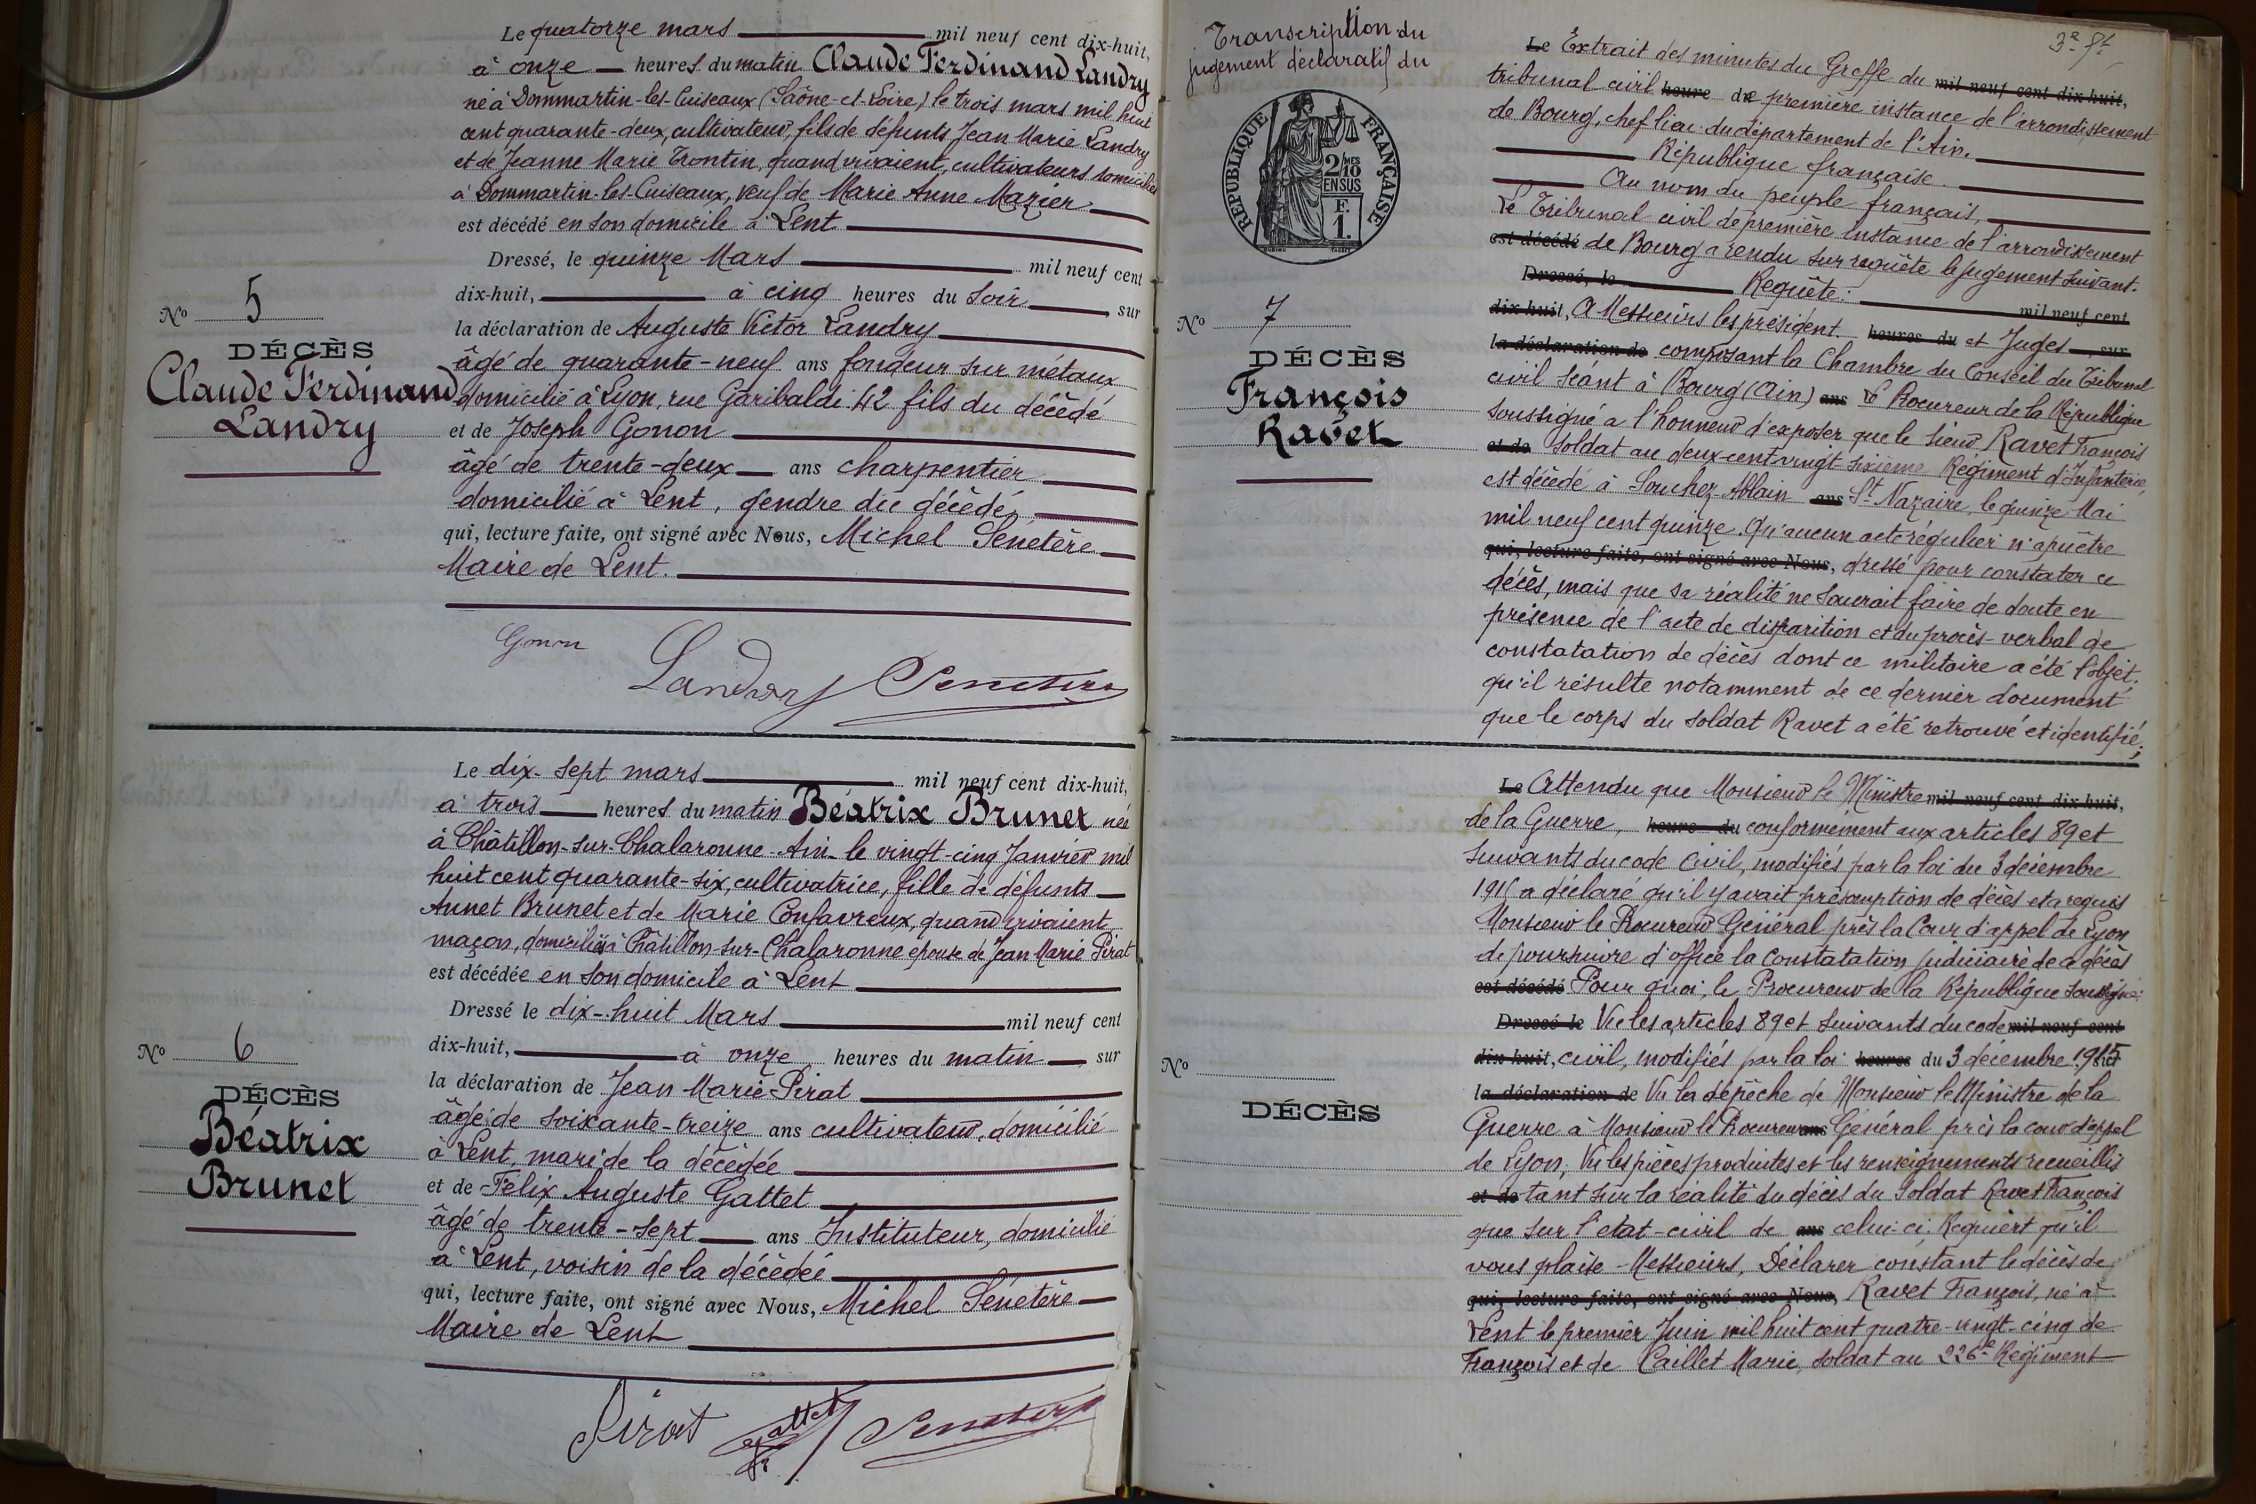 Le quatorze mars mil neuf cent dix-huit,
à onze heures du matin Claude Ferdinand Landry
né à Dommartin-les-Cuiseaux (Saône-et-Loire) le trois mars mil huit
cent quarante-deux, cultivateur, fils de défunts Jean Marie Landry
et de Jeanne Marie Trontin, quand vivaient, cultivateurs domiciliés
à Dommartin-les-Cuiseaux, veuf de Marie Anne Mazier
est décédé en son domicile à Lent
Dressé, le quinze Mars mil neuf cent
dix-huit, à cinq heures du soir, sur
la déclaration de Auguste Victor Landry
âgé de quarante-neuf ans fondeur sur métaux
domicilié à Lyon, rue Garibaldi 42 fils du décédé
et de Joseph Gonon
âgé de trente-deux ans charpentier
domicilié à Lent, gendre du décédé,
qui, lecture faite, ont signé avec Nous, Michel Sénetère
Maire de Lent.
Gonon Landry Senetere
No 5
DÉCÈS
Claude Ferdinand
Landry
Le dix-sept mars mil neuf cent dix-huit,
à trois heures du matin Béatrix Brunet née
à Châtillon-sur-Chalaronne-Ain-le vingt-cinq Janvier mil
huit cent quarante-six, cultivatrice, fille de défunts
Annet Brunet et de Marie Confavreux, quand vivaient
maçon, domiciliés à Châtillon-sur-Chalaronne épouse de Jean Marie Pirat
est décédée en son domicile à Lent
Dressé le dix-huit Mars mil neuf cent
dix-huit, à onze heures du matin, sur
la déclaration de Jean-Marie Pirat
âgé de soixante-treize ans cultivateur, domicilié
à Lent, mari de la décédée
et de Félix Auguste Gattet
âgé de trente-sept ans Instituteur, domicilié
à Lent, voisin de la décédée
qui, lecture faite, ont signé avec Nous, Michel Sénetère
Maire de Lent
Pirat Gattet Senetere
No 6
DÉCÈS
Béatrix
Brunet
Transcription du
jugement déclaratif du
RÉPUBLIQUE FRANÇAISE
2/10 MES
EN SUS
F.
1.
No 7
DÉCÈS
François
Ravet
Le Extrait des minutes du Greffe du mil neuf cent dix huit,
tribunal civil heure de première instance de l'arrondissement
de Bourg, chef lieu du département de l'Ain.
République française.
Au nom du peuple français,
Le Tribunal civil de première instance de l'arrondissement
est décédé de Bourg a rendu sur requête le jugement suivant.
Dressé, le Requête: mil neuf cent
dix-huit, A Messieurs les président heures du et Juges, sur
la déclaration de composant la Chambre du Conseil du Tribunal
civil séant à Bourg (Ain) ans Le Procureur de la République
soussigné a l'honneur d'exposer que le sieur Ravet François
et de soldat au deux-cent-vingt-sixième Régiment d'Infanterie,
est décédé à Souchez Ablain ans St Nazaire, le quinze Mai
mil neuf cent quinze. Qu'aucun acte régulier n'a pu être
qui, lecture faite, ont signé avec Nous, dressé pour constater ce
décès, mais que sa réalité ne saurait faire de doute en
présence de l'acte de disparition et du procès-verbal de
constatation de décès dont ce militaire a été l'objet.
qu'il résulte notamment de ce dernier document
que le corps du soldat Ravet a été retrouvé et identifié;
Le Attendu que Monsieur le Ministre mil neuf cent dix huit,
de la Guerre, heure du conformément aux articles 89 et
suivants du code civil, modifiés par la loi du 3 décembre
1915 a déclaré qu'il y avait présomption de décès et a requis
Monsieur le Procureur Général près la Cour d'appel de Lyon
de poursuivre d'office la constatation judiciaire de ce décès
est décédé Pour quoi, le Procureur de la République soussigné;
Dressé le Vu les articles 89 et suivants du code mil neuf cent
dix huit, civil, modifiés par la loi heures du 3 décembre 1915
la déclaration de Vu la dépêche de Monsieur le Ministre de la
Guerre à Monsieur le Procureur ans Général près la cour d'appel
de Lyon, Vu les pièces produites et les renseignements recueillis
et de tant sur la réalité du décès du soldat Ravet François
que sur l'état-civil de ans celui-ci; Requiert qu'il
vous plaise - Messieurs, Déclarer constant le décès de
qui, lecture faite, ont signé avec Nous, Ravet François, né à
Lent le premier Juin mil huit cent quatre-vingt-cinq de
François et de Caillet Marie, soldat au 226e Régiment
No
DÉCÈS